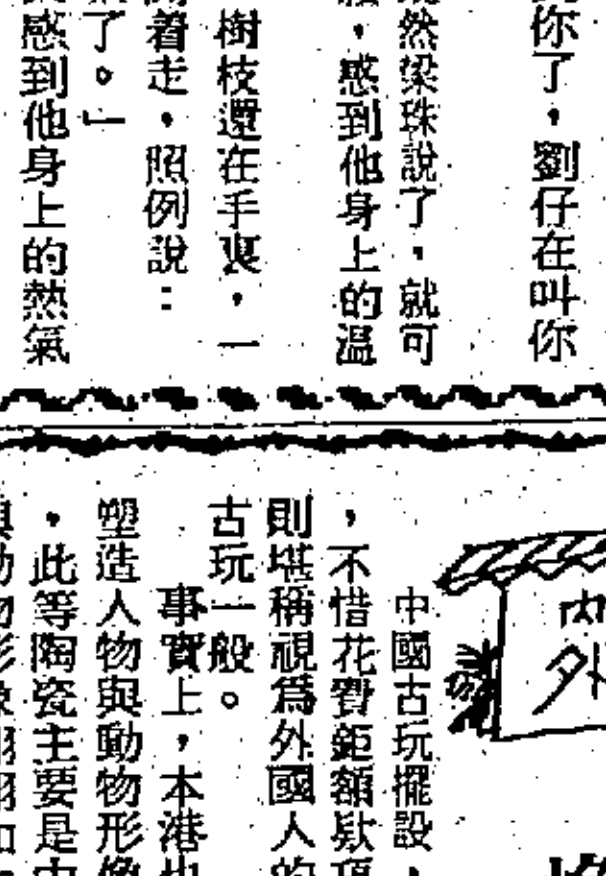 你了，劉仔在叫你
然梁珠說了，就可
，感到他身上的温
樹枝還在手裏，一
着走，照例說：
了。」
感到他身上的熱氣
內
外
中國古玩擺設，
，不惜花費鉅額欵項
則堪稱視爲外國人的
古玩一般。
事實上，本港也
塑造人物與動物形像
，此等陶瓷主要是由
動物形象栩栩如